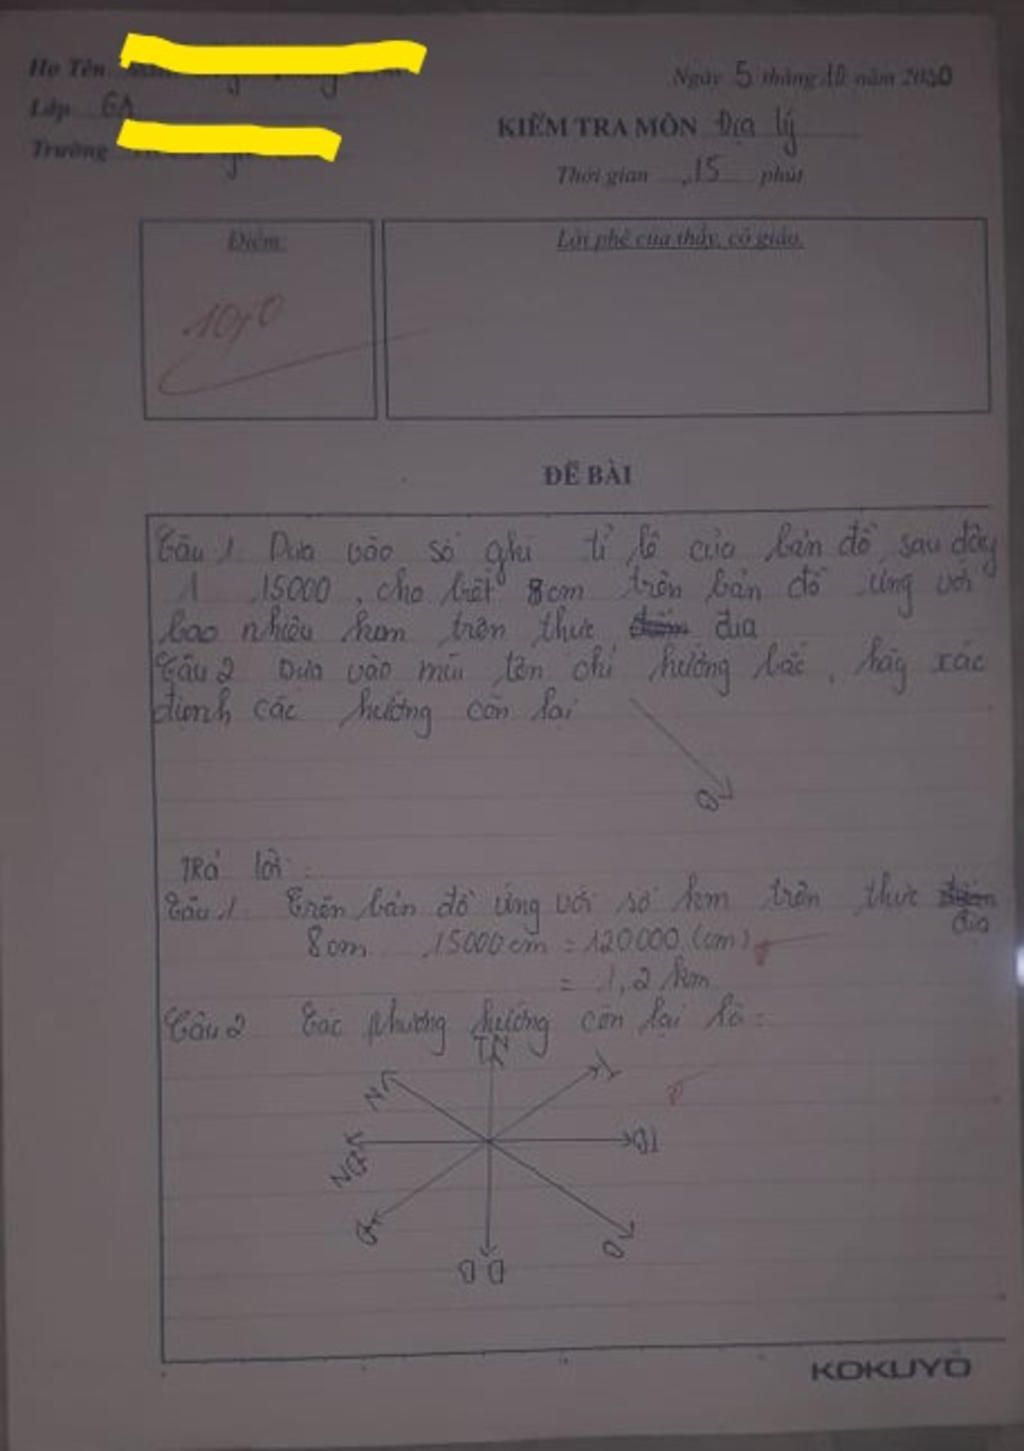 Họ Tên
Lớp 6A
Trường
Ngày 5 tháng 10 năm 2020
KIỂM TRA MÔN Địa lý
Thời gian 15 phút
Điểm:
Lời phê của thầy, cô giáo.
10,0
ĐỀ BÀI
Câu 1 Dựa vào số ghi tỉ lệ của bản đồ sau đây
1 15000, cho biết 8cm trên bản đồ ứng với
bao nhiêu km trên thực địa
Câu 2 Dựa vào mũi tên chỉ hướng bắc, hãy xác
định các hướng còn lại
B
Trả lời:
Câu 1 Trên bản đồ ứng với số km trên thực
địa
8cm .15000cm = 120000 (cm)
= 1,2 km
Câu 2 Các phương hướng còn lại là:
TN
N
T
TB
NĐ
Đ
B
ĐB
KOKUYO